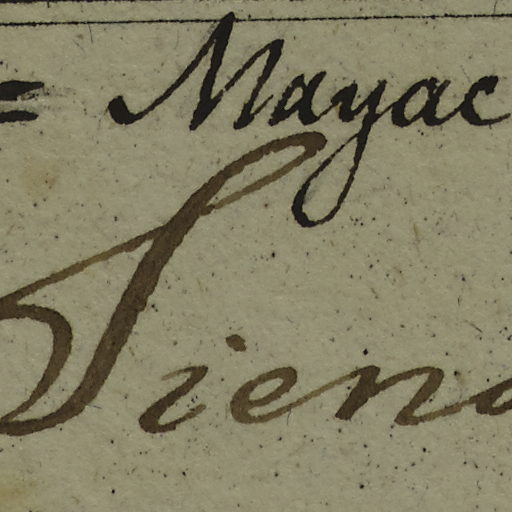 = Mayac
Siena